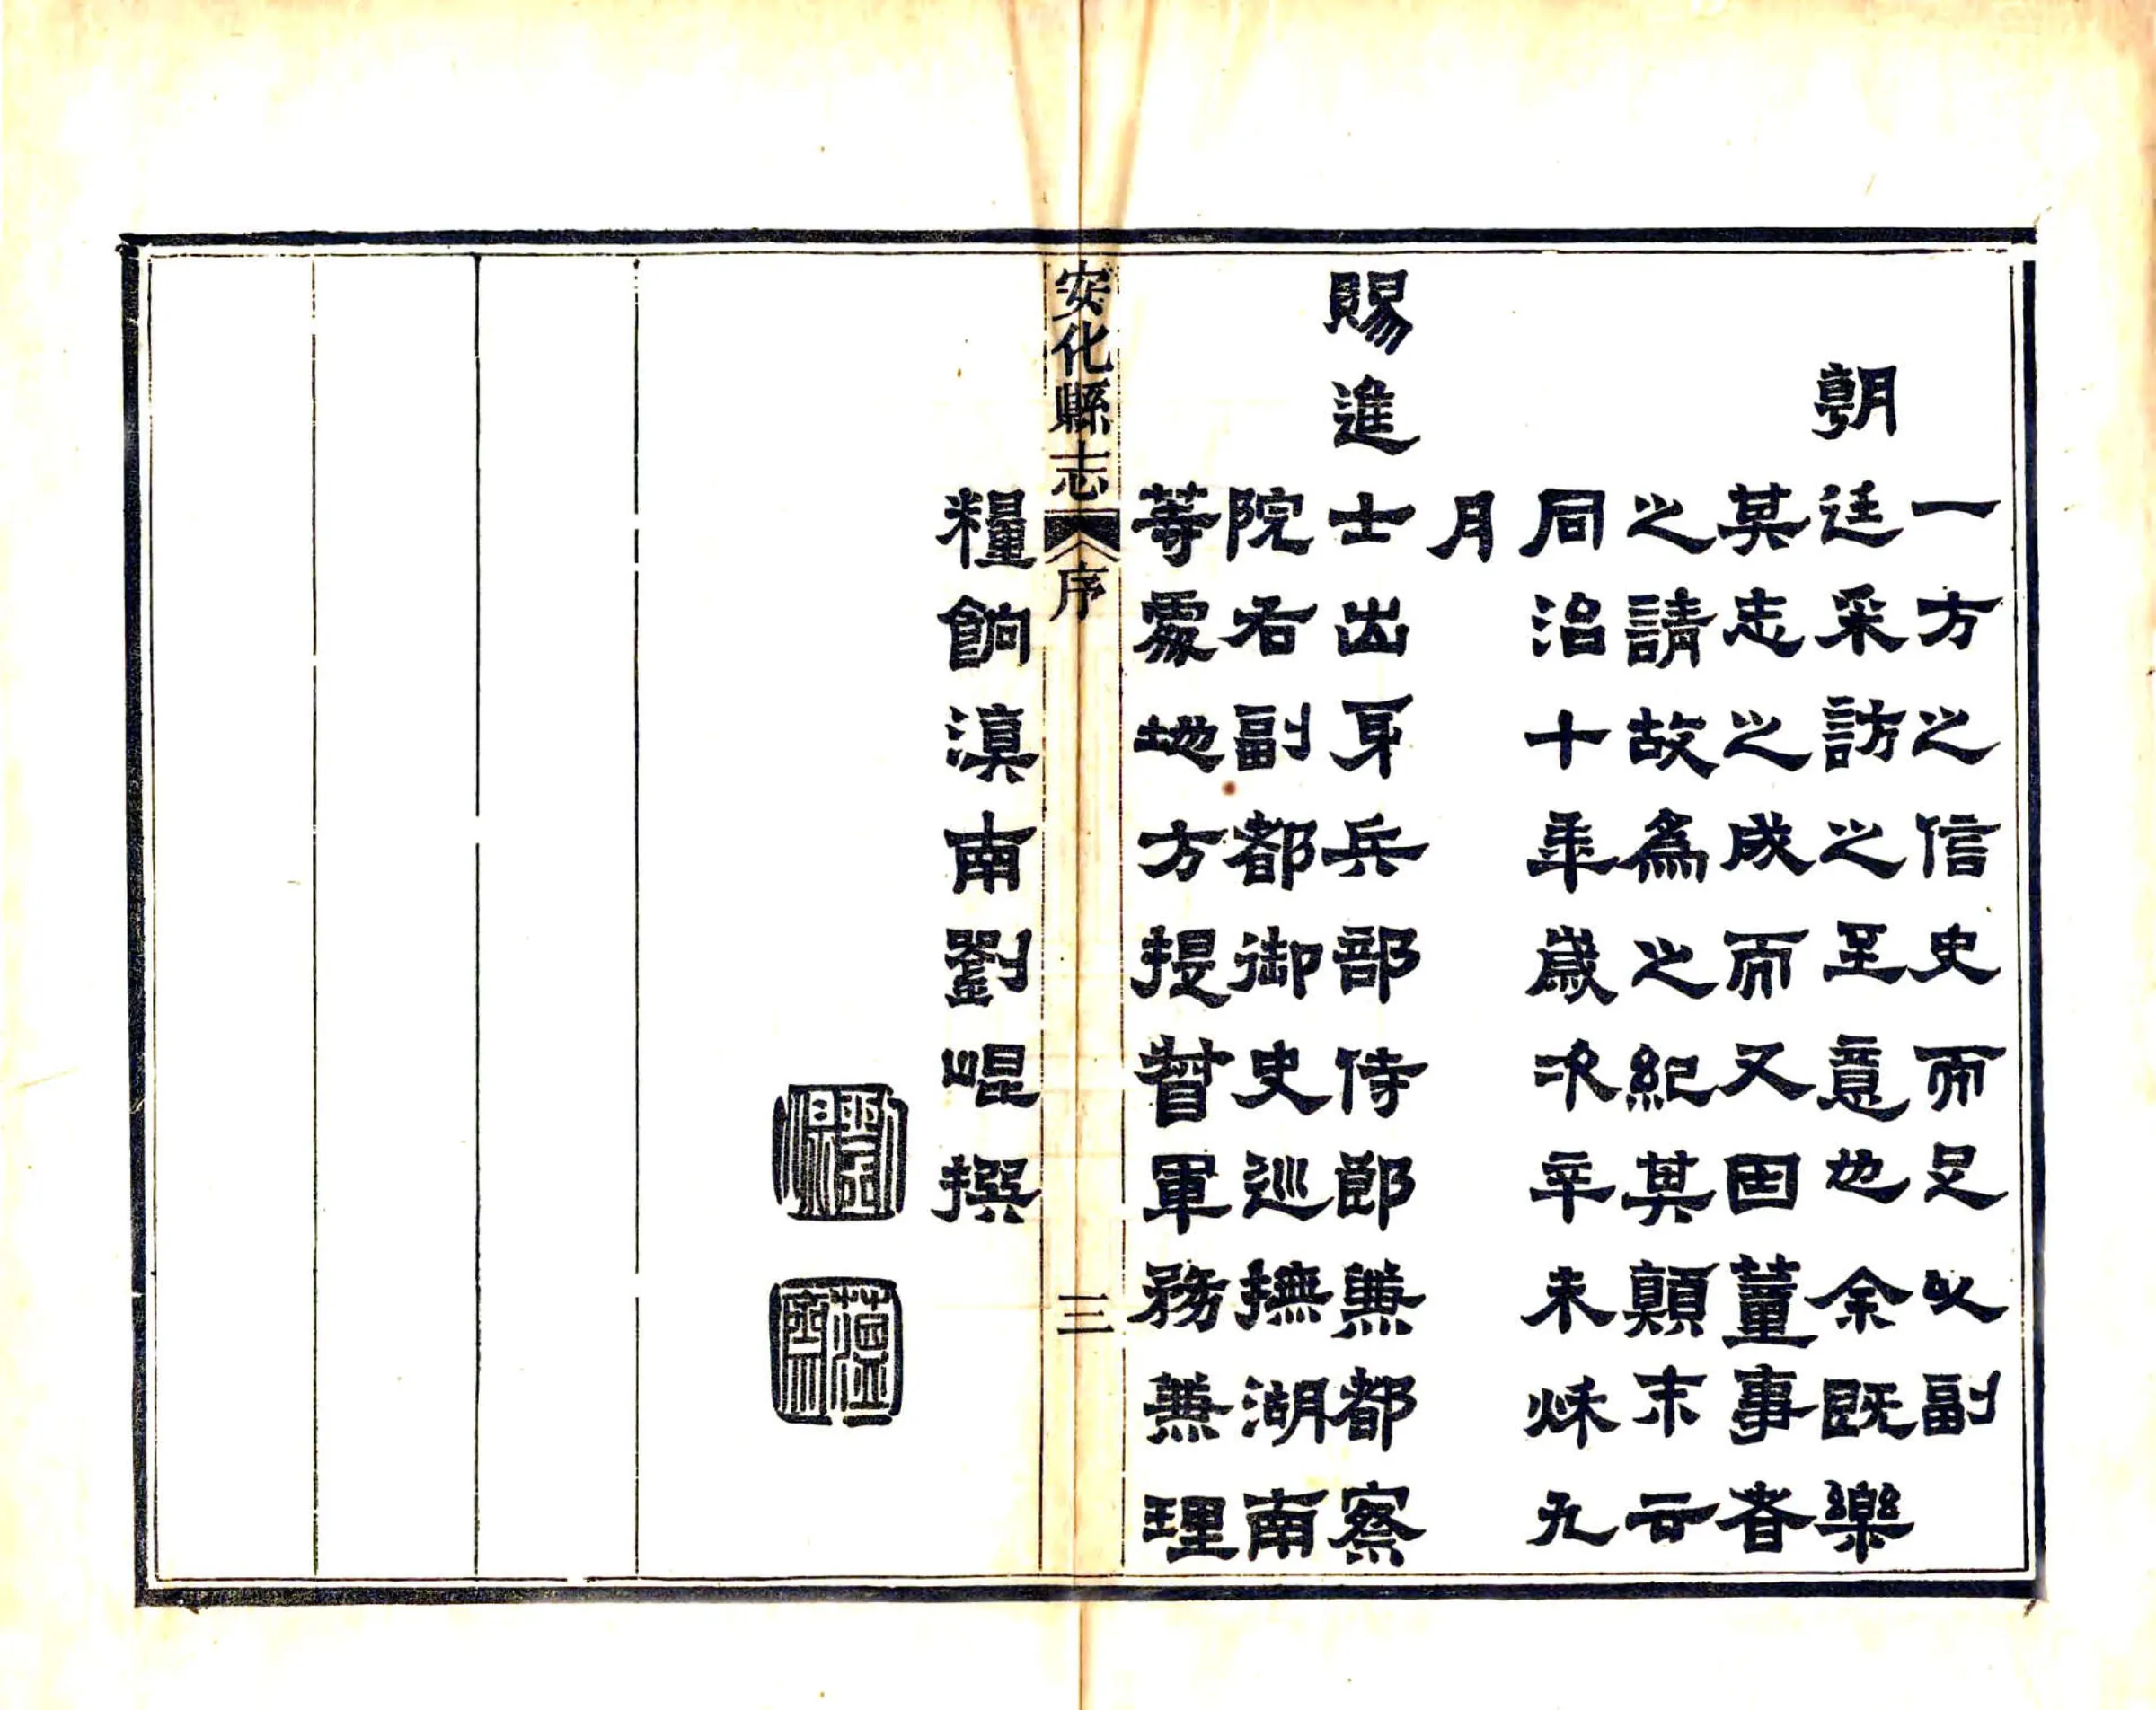 一方之信史而足以副
朝廷采訪之至意也余既樂
其志之成而又因董事者
之請故為之紀其顛末云
同治十年歲次辛未秌九
月
賜進士出身兵部侍郎兼都察
院右副都御史巡撫湖南
等處地方提督軍務兼理
糧餉滇南劉崐撰
劉崐
蘊齋
安化縣志
序
三